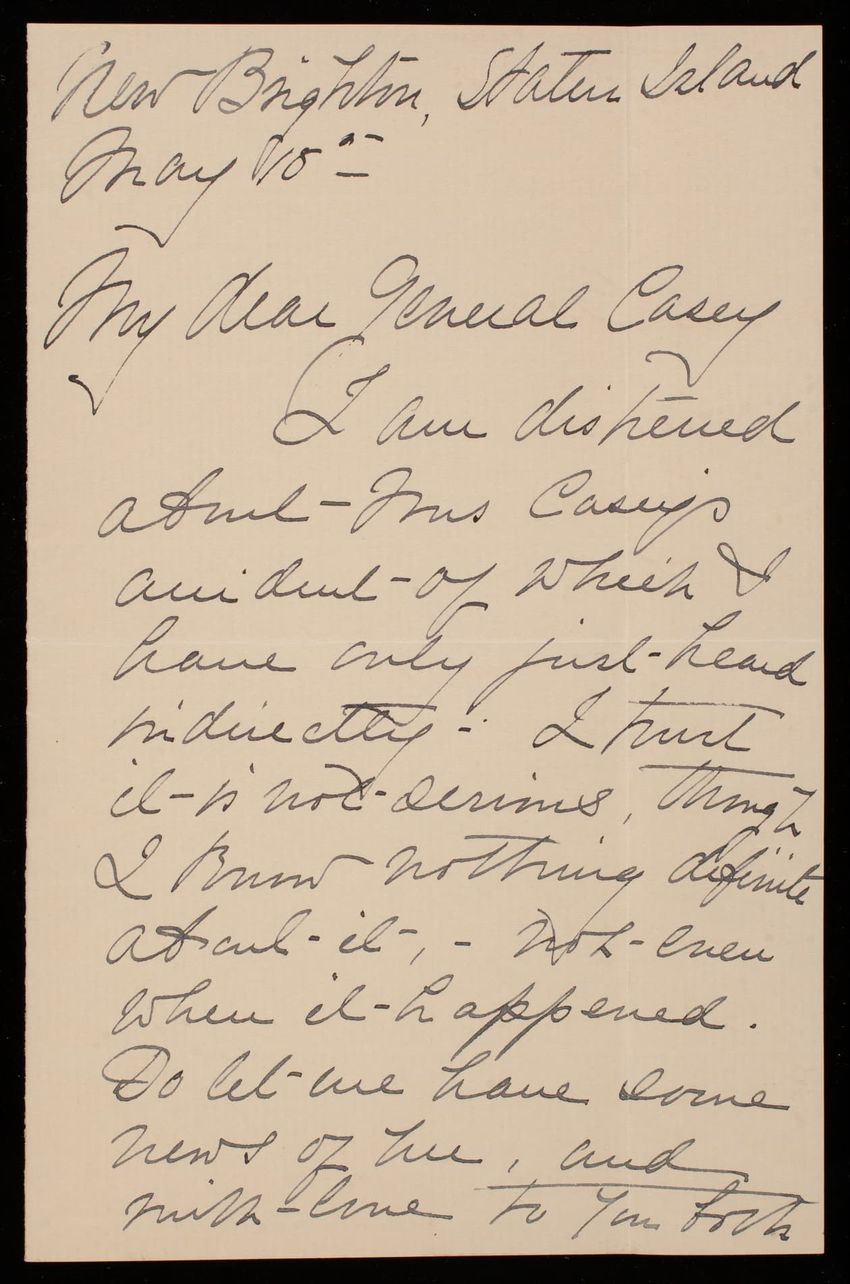 New Brighton, Staten Island
May 18th
My dear General Casey
I am distressed
about Mrs Casey's
accident of which I
have only just heard
indirectly -. I trust
it is not serious, though
I know nothing definite
about it, - not even
when it happened.
Do let me have some
news of her, and
with love to you both